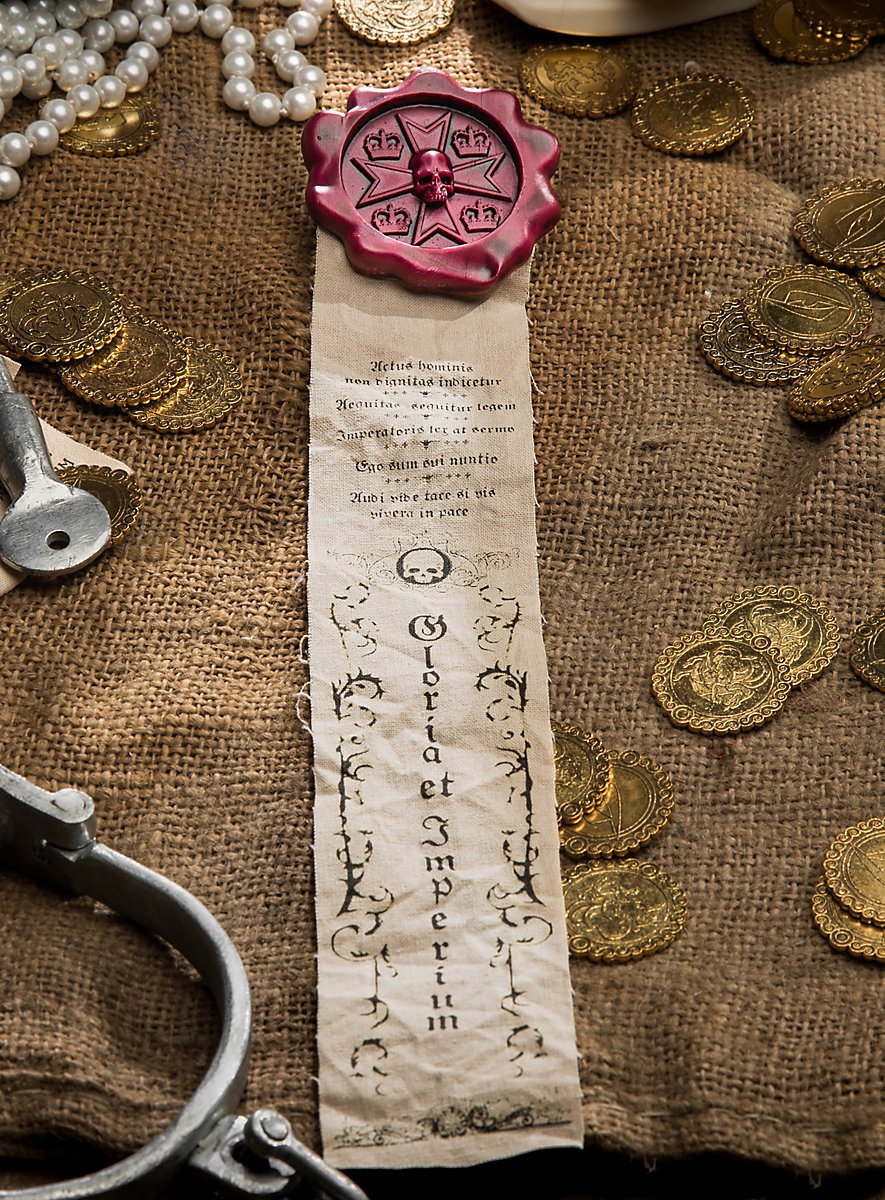 Actus hominis
non dignitas indicetur
Aequitas sequitur legem
Imperatoris lex at sermo
Ego sum sui nuntio
Audi vide tace si vis
vivera in pace
Gloria et Imperium